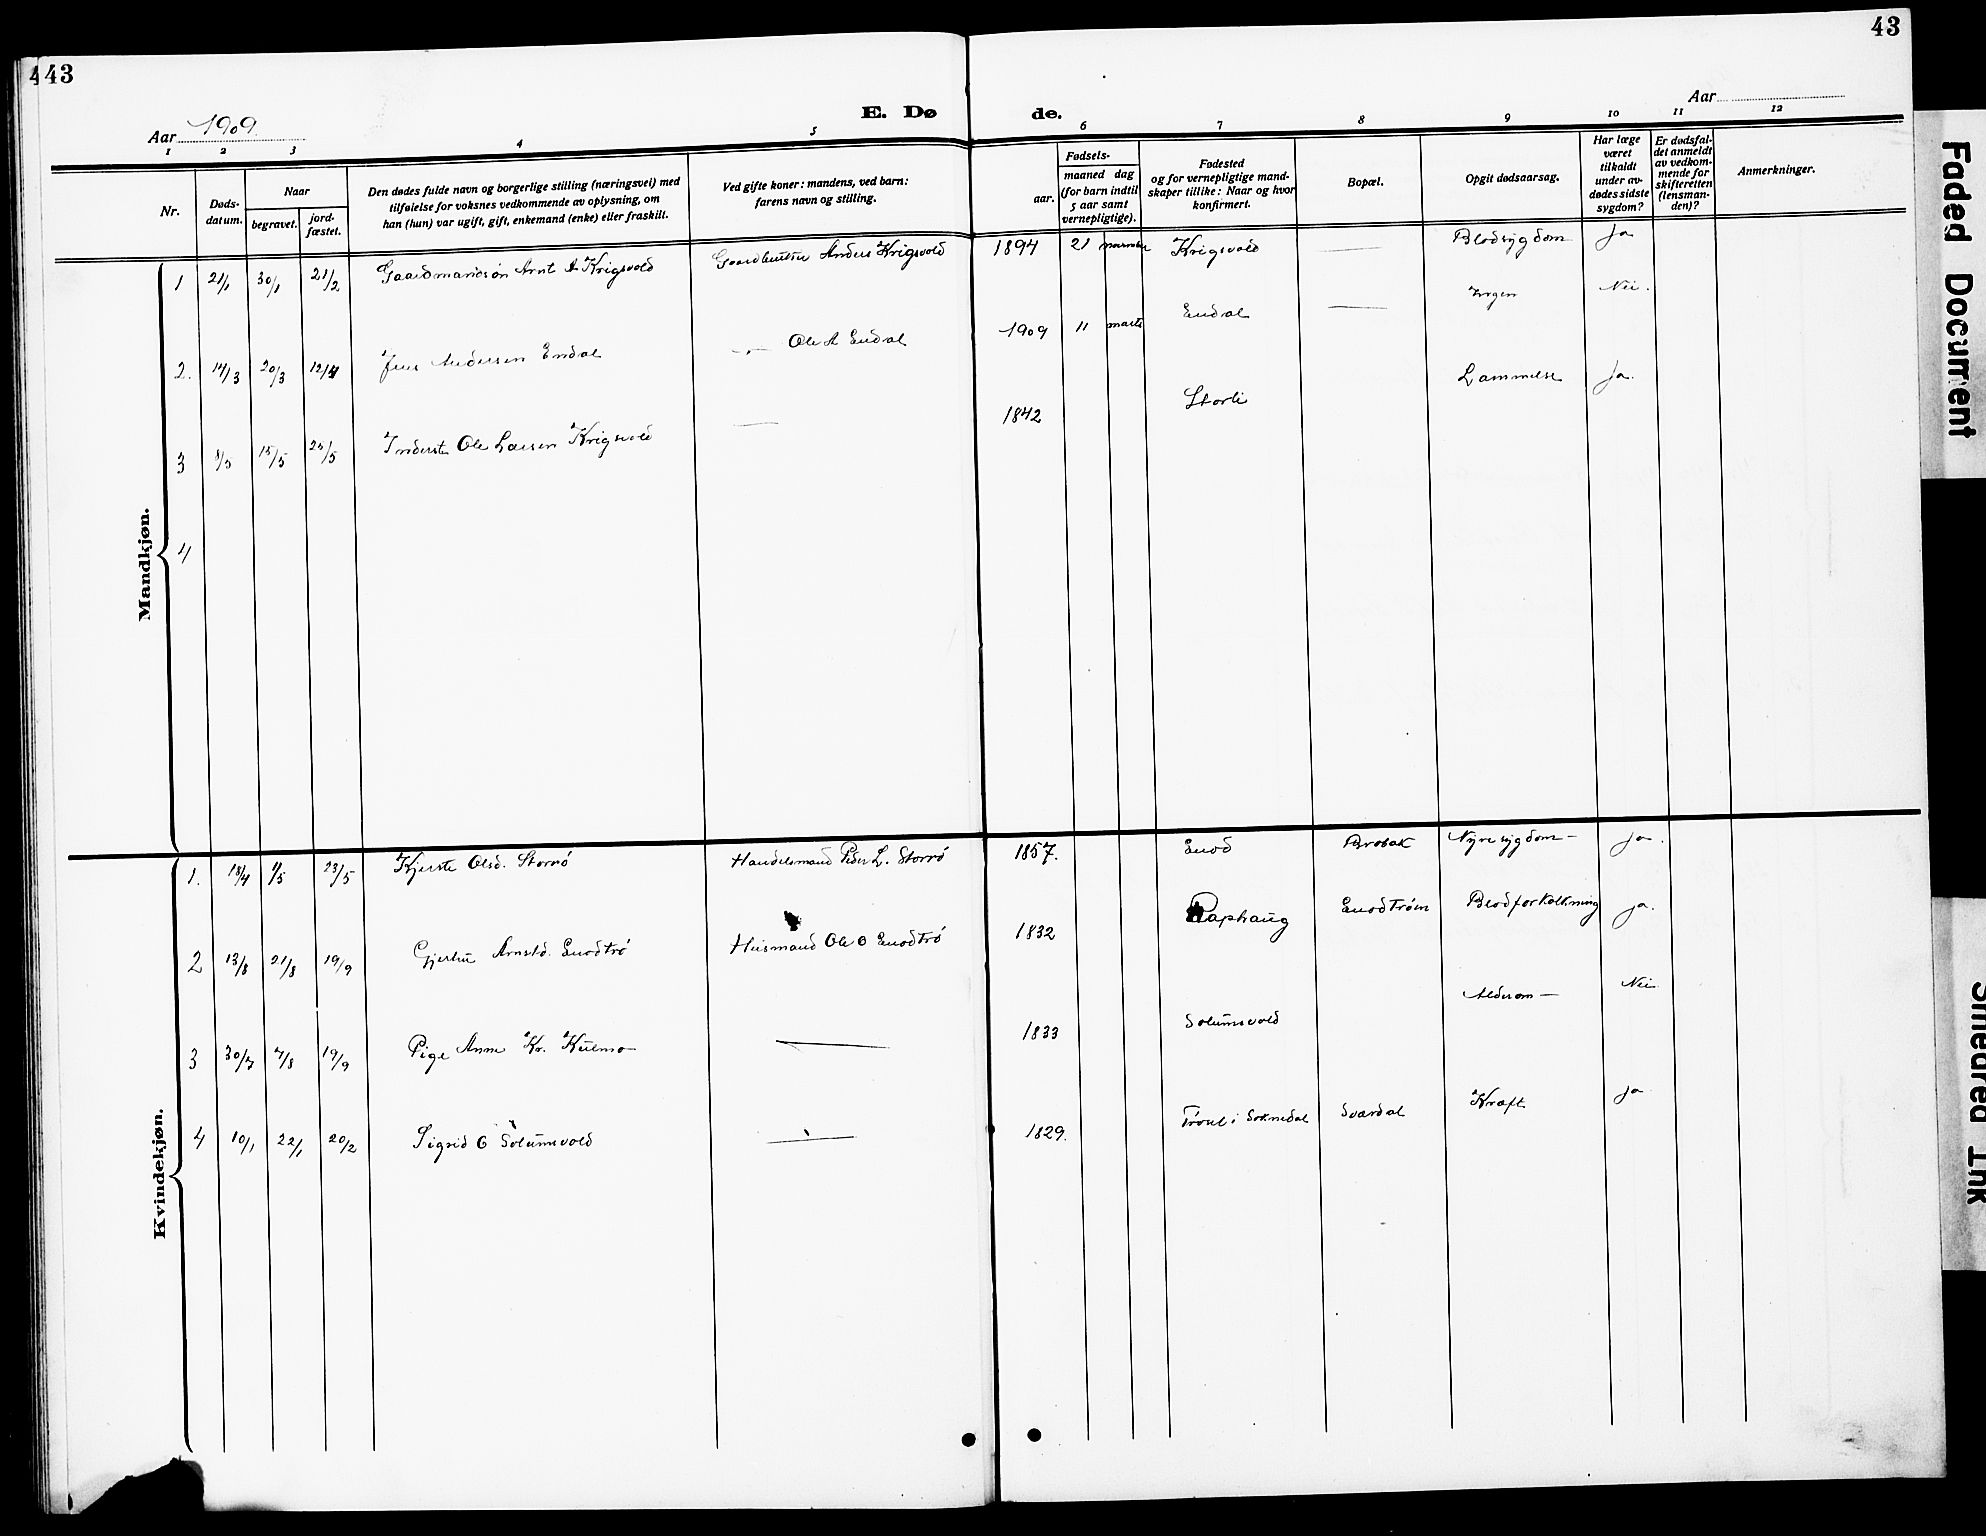 443
43
E. Døde.
Aar 1909.
Aar
1 2 3 4 5 6 7 8 9 10 11 12
Nr.
Dødsdatum.
Naar
begravet.
jordfæstet.
Den dødes fulde navn og borgerlige stilling (næringsvei) med
tilføielse for voksnes vedkommende av oplysning, om
han (hun) var ugift, gift, enkemand (enke) eller fraskilt.
Ved gifte koner: mandens, ved barn:
farens navn og stilling.
Fødsels-
aar.
maaned dag
(for barn indtil
5 aar samt
vernepligtige).
Fødested
og for vernepligtige mand-
skaper tillike: Naar og hvor
konfirmert.
Bopæl.
Opgit dødsaarsag.
Har læge
været
tilkaldt
under av-
dødes sidste
sygdom?
Er dødsfal-
det anmeldt
av vedkom-
mende for
skifteretten
(lensman-
den)?
Anmerkninger.
Mandkjøn.
1 21/1 30/1 21/2 Gaardmandsøn Arnt A Krigsvold Gaardbruker Anders Krigsvold 1894 21 november Krigsvold — Blodsygdom Ja
2. 14/3 20/3 12/4 Jens Andersen Endal —"— Ole A Endal 1909 11 marts Endal — Ingen Nei.
3 8/5 15/5 25/5 Inderst Ole Larsen Krigsvold — 1842 Storli Lammelse Ja.
4
Kvindekjøn.
1. 18/4 1/5 23/5 Kjerste Olsd. Storrø Handelsmand Peder L. Storrø 1857. Enod Brobak Nyresygdom — Ja.
2 13/8 21/8 19/9 Gjertru Arnstd. Enodtrø Husmand Ole O Enodtrø 1832 Raphaug Enodtrøen Blodforkalkning Ja.
3 30/7 7/8 19/9 Pige Anne Kr. Kulmo — 1833 Solumsvold Alderdom — Nei
4 10/1 22/1 20/2 Sigrid O Solumsvold — 1829. i Soknedal Svardal Kræft Ja
Faded Document
Smeared Ink